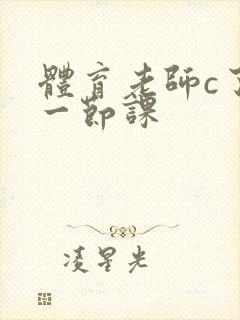 體育老師c了
一節課
凌星光